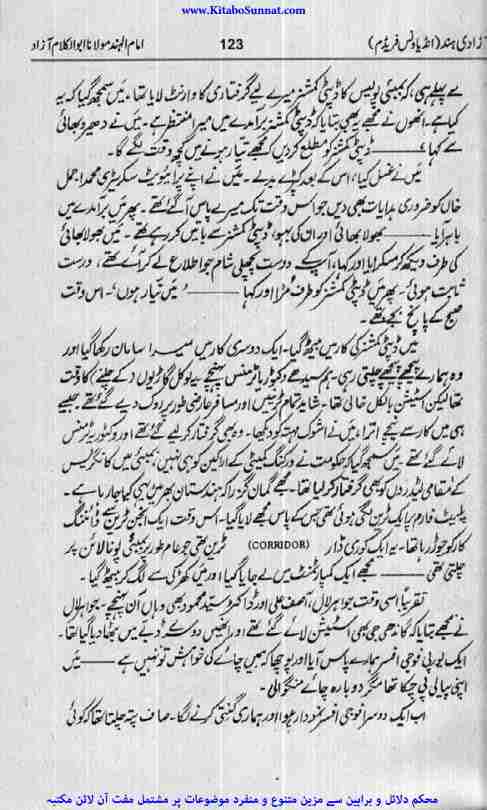 www.KitaboSunnat.com
آزادی ہند (انڈیا ونس فریڈم) 123 امام الہند مولانا ابوالکلام آزاد
سے پہلے ہی، کہ بمبئی پولیس کا ڈپٹی کمشنر میرے لیے گرفتاری کا وارنٹ لایا تھا، میں سمجھ گیا کہ یہ
کیا ہے۔ انھوں نے مجھے یہ بھی بتایا کہ ڈپٹی کمشنر برآمدے میں میرا منتظر ہے۔ میں نے دھیرو بھائی
سے کہا، —— ڈپٹی کمشنر کو مطلع کر دیں کہ مجھے تیار ہونے میں کچھ وقت لگے گا۔
میں نے غسل کیا، اس کے بعد کپڑے بدلے۔ میں نے اپنے پرائیویٹ سکریٹری محمد اجمل
خاں کو ضروری ہدایات بھی دیں جو اس وقت تک میرے پاس آ گئے تھے۔ پھر میں برآمدے میں
باہر آیا۔ —— بھولا بھائی اور ان کی بہو، ڈپٹی کمشنر سے باتیں کر رہے تھے۔ میں بھولا بھائی
کی طرف دیکھ کر مسکرایا اور کہا، آپ کے دوست پچھلی شام جو اطلاع لے کر آئے تھے، درست
ثابت ہوئی۔ پھر میں ڈپٹی کمشنر کی طرف مڑا اور کہا —— ’میں تیار ہوں‘۔ اس وقت
صبح کے پانچ بجے تھے۔
میں ڈپٹی کمشنر کی کار میں بیٹھ گیا۔ ایک دوسری کار میں میرا سامان رکھا گیا اور
وہ ہمارے پیچھے پیچھے چلتی رہی۔ ہم سیدھے وکٹوریا ٹرمنس پہنچے۔ یہ لوکل گاڑیوں کے چلنے کا وقت
تھا لیکن اسٹیشن بالکل خالی تھا۔ شاید تمام ٹرینیں اور مسافر عارضی طور پر روک دیے گئے تھے۔ جیسے
ہی میں کار سے نیچے اترا، میں نے اشوک مہتہ کو دیکھا۔ وہ بھی گرفتار کر لیے گئے تھے اور وکٹوریہ ٹرمنس
لائے گئے تھے۔ میں سمجھ گیا کہ حکومت نے ورکنگ کمیٹی کے اراکین کو ہی نہیں، بمبئی میں کانگریس
کے مقامی لیڈروں کو بھی گرفتار کر لیا تھا۔ مجھے گمان گزرا کہ ہندستان بھر میں یہی کیا جا رہا ہے۔
پلیٹ فارم پر ایک ٹرین لگی ہوئی تھی جس کے پاس مجھے لایا گیا۔ اس وقت ایک انجن ٹرین سے ڈائننگ
کار کو جوڑ رہا تھا۔ یہ ایک کوری ڈار (CORRIDOR) ٹرین تھی جو عام طور پر بمبئی پونا لائن پر
چلتی تھی —— مجھے ایک کمپارٹمنٹ میں لے جایا گیا اور میں کھڑکی سے لگ کر بیٹھ گیا۔
تقریباً اسی وقت جواہر لال، آصف علی اور ڈاکٹر سید محمود بھی وہاں آن پہنچے۔ جواہر لال
نے مجھے بتایا کہ گاندھی جی بھی اسٹیشن لائے گئے تھے اور انھیں دوسرے ڈبے میں بٹھا دیا گیا تھا۔
ایک یورپی فوجی افسر ہمارے پاس آیا اور پوچھا کہ ہمیں چائے کی خواہش تو نہیں ہے —— میں
اپنی پیالی پی چکا تھا مگر دوبارہ چائے منگوا لی۔
اب ایک دوسرا فوجی افسر نمودار ہوا اور ہماری گنتی کرنے لگا۔ صاف پتہ چلتا تھا کہ کوئی
محکم دلائل و براہین سے مزین متنوع و منفرد موضوعات پر مشتمل مفت آن لائن مکتبہ